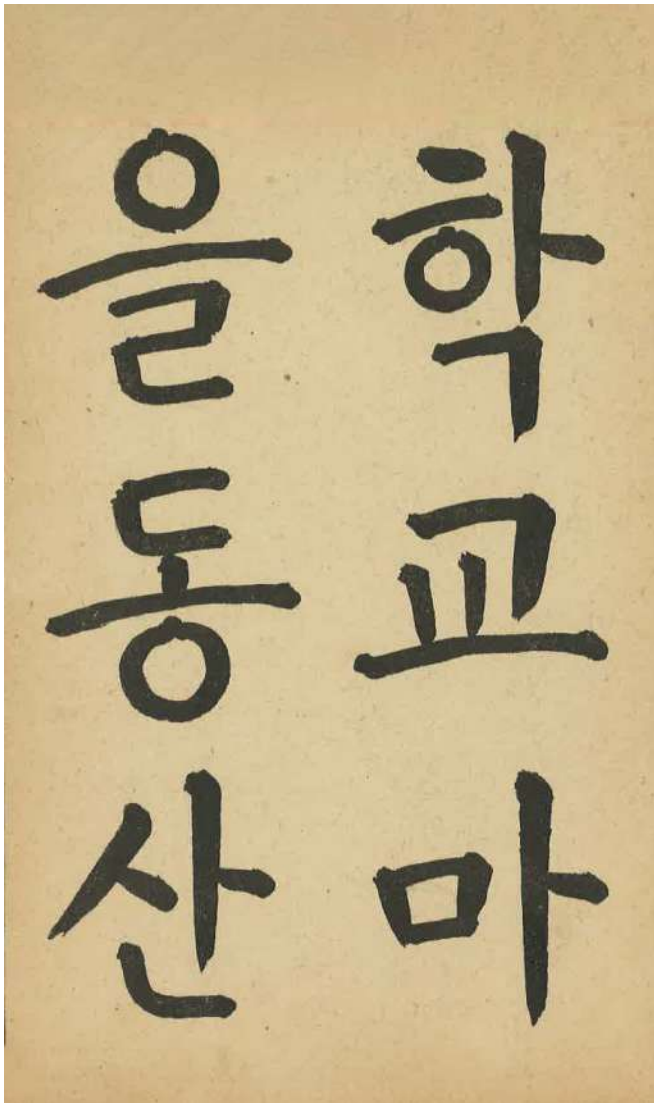 학교마
을동산